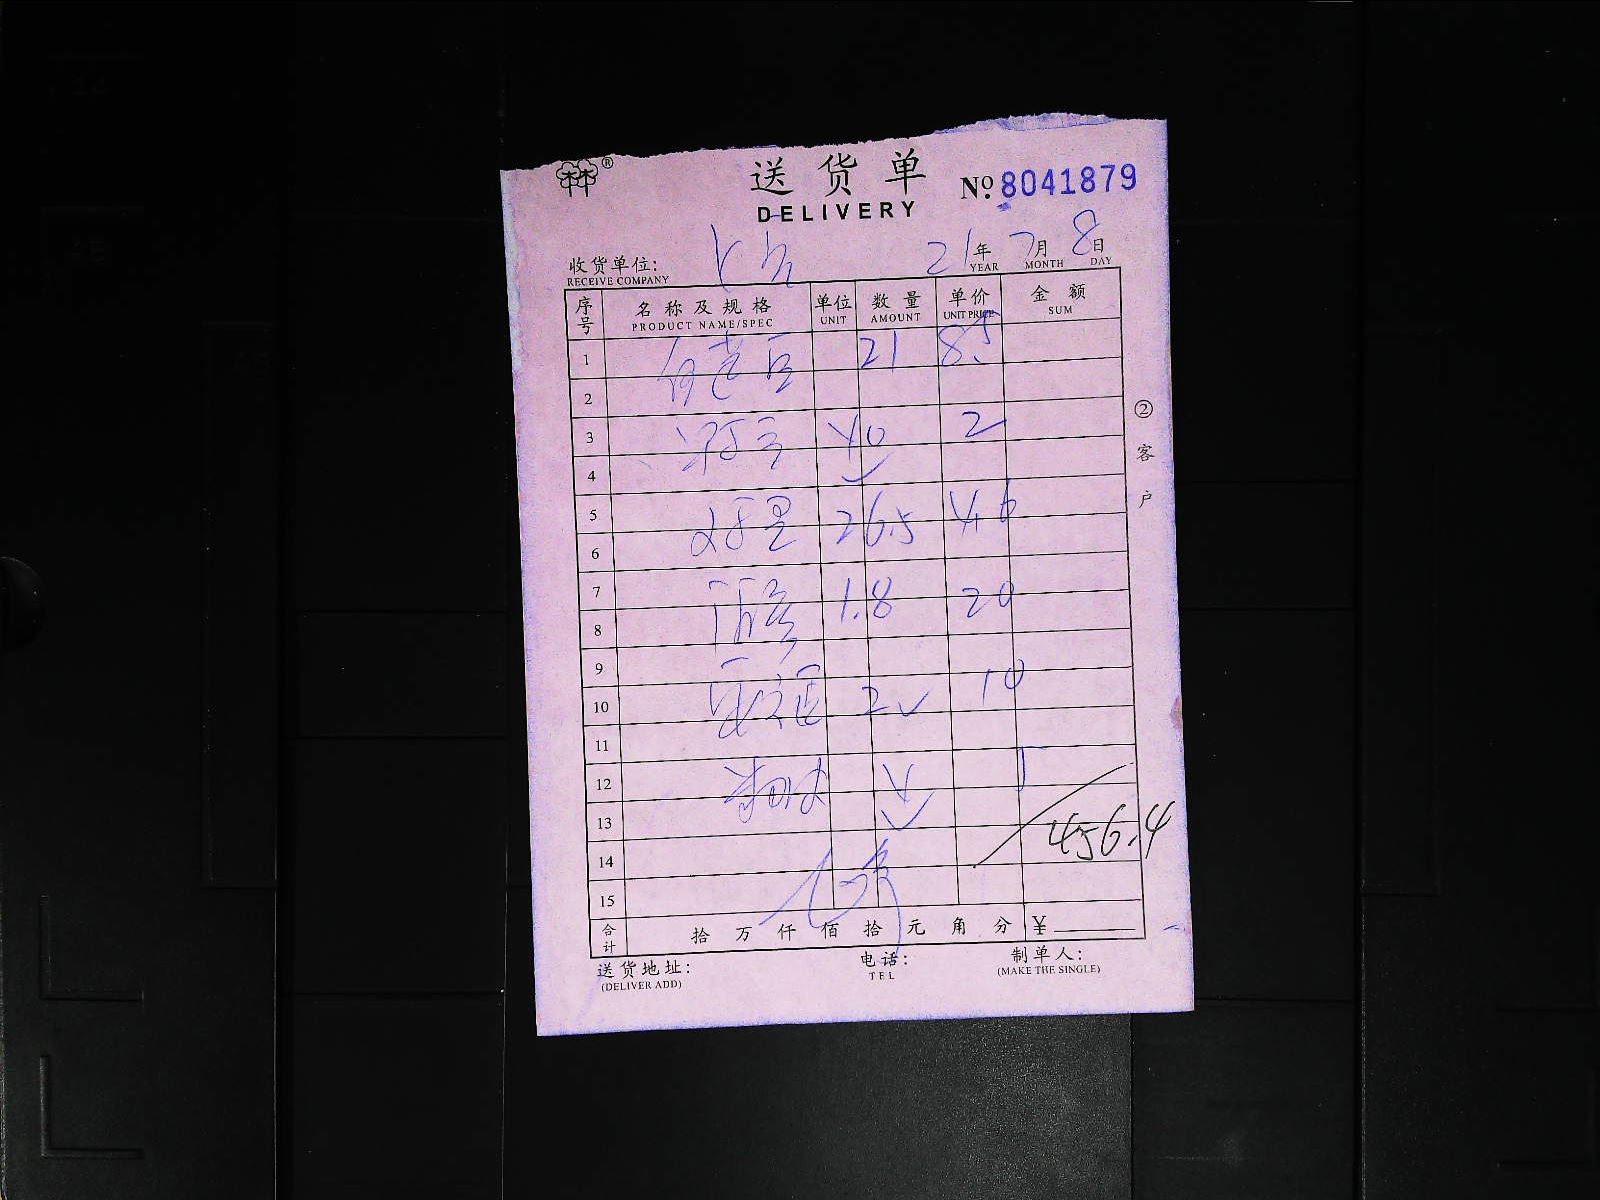 ®
送货单 No. 8041879
DELIVERY
收货单位: 21年 7月 8日
RECEIVE COMPANY YEAR MONTH DAY
序号 名称及规格 单位 数量 单价 金额
PRODUCT NAME/SPEC UNIT AMOUNT UNIT PRICE SUM
1 21 8.5
2
3 40 2
4
5 26.5 4.6
6
7 1.8 20
8
9
10 2 10
11
12 4 5
13 456.4
14
15
合计 拾 万 仟 佰 拾 元 角 分 ¥
送货地址: 电话: 制单人:
(DELIVER ADD) TEL (MAKE THE SINGLE)
② 客户